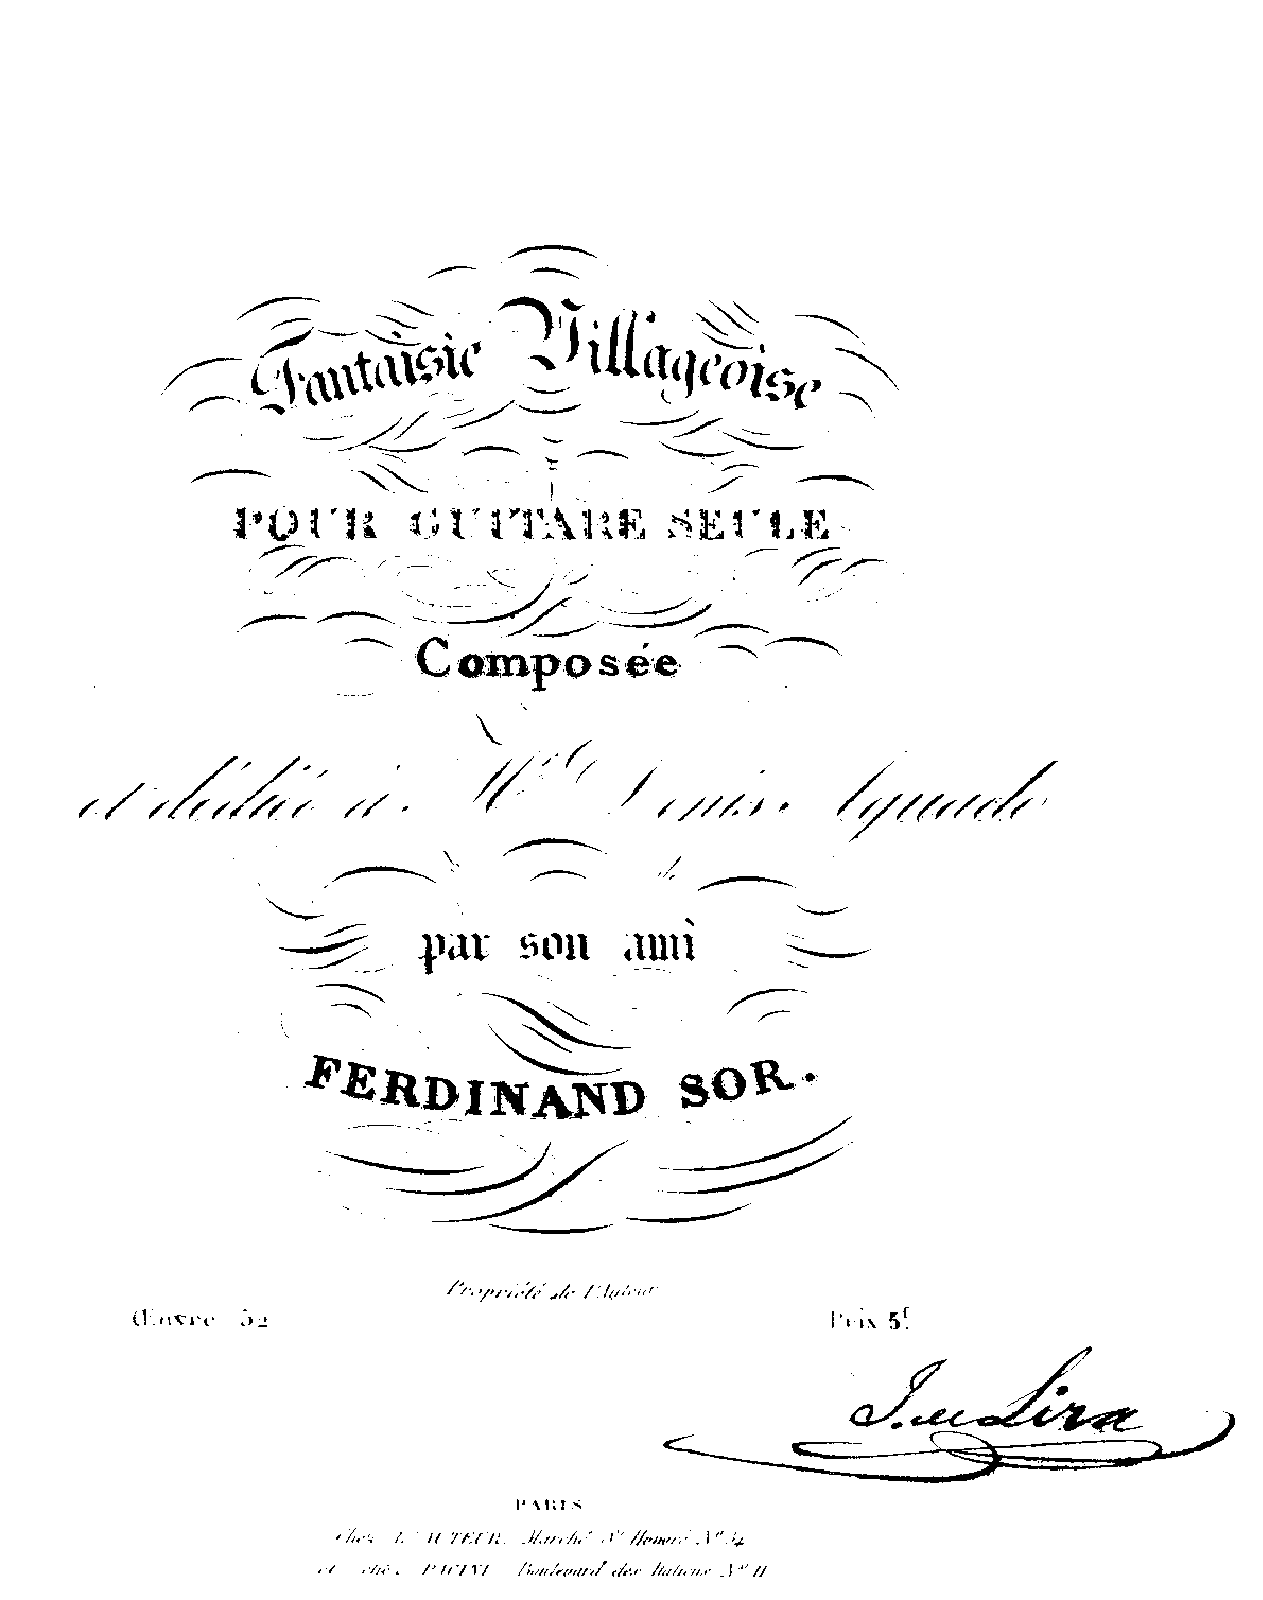 Fantaisie Villageoise
POUR GUITARE SEULE
Composée
et dédiée à Denis Aguado
par son ami
FERDINAND SOR.
Propriété de l'Auteur
Œuvre 52
Prix 5f
J. de Lira
PARIS
Chez L'AUTEUR, Marché St Honoré No 34
et chez PACINI Boulevard des Italiens No 11